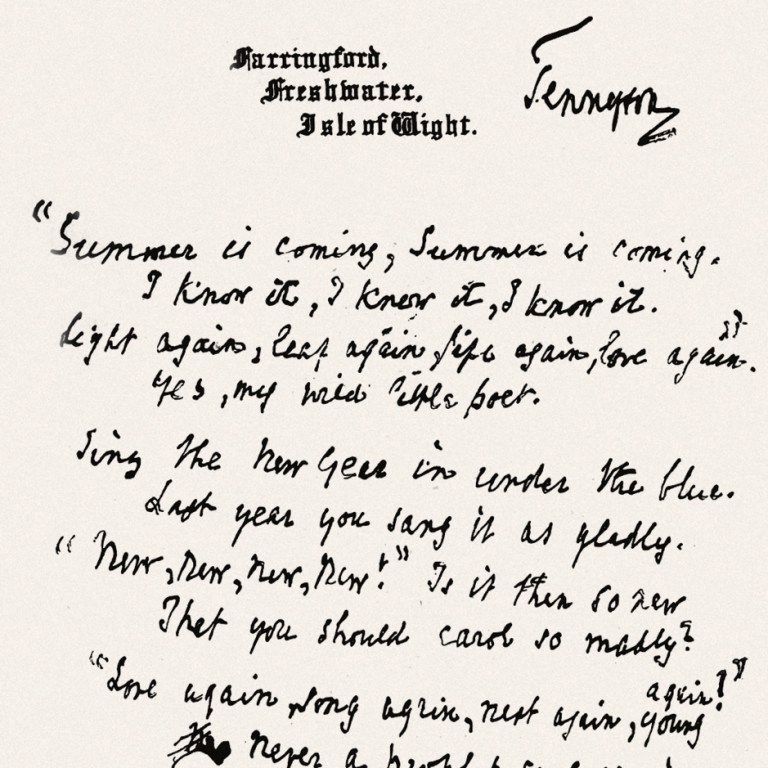 Farringford,
Freshwater,
Isle of Wight.
Tennyson
"Summer is coming, Summer is coming.
I know it, I know it, I know it.
Light again, leaf again, life again, love again."
Yes, my wild little poet.
Sing the New Year in under the blue.
Last year you sang it as gladly.
"New, new, new, new!" Is it then so new
That you should carol so madly?
"Love again, song again, nest again, young again!"
never a prophet so